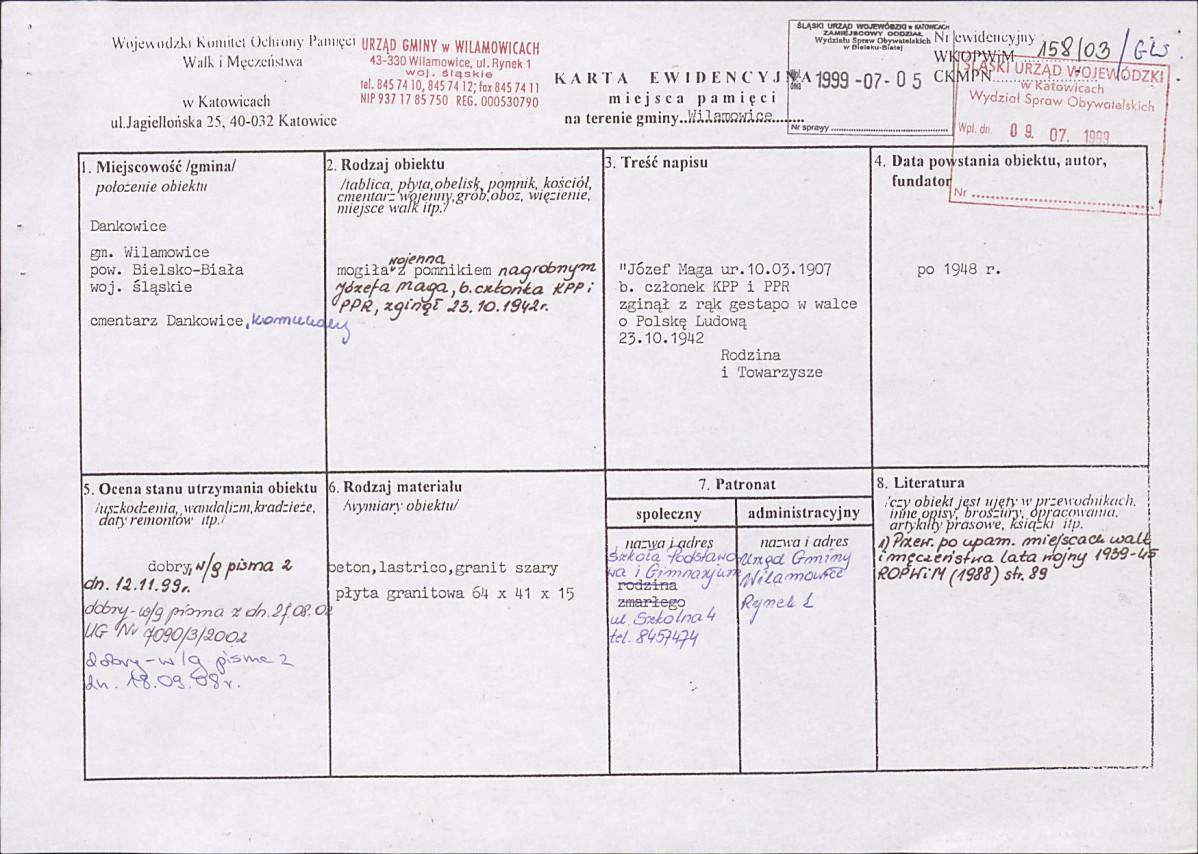 Wojewodzki Komitet Ochrony Pamięci
Walk i Męczeństwa
w Katowicach
ul.Jagiellońska 25, 40-032 Katowice
URZĄD GMINY w WILAMOWICACH
43-330 Wilamowice, ul. Rynek 1
woj. śląskie
tel. 845 74 10, 845 74 12; fax 845 74 11
NIP 937 17 85 750 REG. 000530790
KARTA EWIDENCYJNA
miejsca pamięci
na terenie gminy..Wilamowice.......
ŚLĄSKI URZĄD WOJEWÓDZKI w KATOWICACH
ZAMIEJSCOWY ODDZIAŁ
Wydziału Spraw Obywatelskich
w Bielsku-Białej
1999 -07- 05
Nr sprawy
Nr ewidencyjny
WKOPWiM 158/03/GW
CKMPN
ŚLĄSKI URZĄD WOJEWÓDZKI
w Katowicach
Wydział Spraw Obywatelskich
Wpł. dn. 09. 07. 1999
Nr
1. Miejscowość /gmina/
położenie obiektu
Dankowice
gm. Wilamowice
pow. Bielsko-Biała
woj. śląskie
cmentarz Dankowice, komunalny
2. Rodzaj obiektu
/tablica, płyta,obelisk, pomnik, kościół,
cmentarz wojenny,grób,obóz, więzienie,
miejsce walk itp./
wojenna
mogiła z pomnikiem nagrobnym
Józefa Maga, b. członka KPP i
PPR, zginął 23.10.1942r.
3. Treść napisu
"Józef Maga ur.10.03.1907
b. członek KPP i PPR
zginął z rąk gestapo w walce
o Polskę Ludową
23.10.1942
Rodzina
i Towarzysze
4. Data powstania obiektu, autor,
fundator
po 1948 r.
5. Ocena stanu utrzymania obiektu
/uszkodzenia, wandalizm,kradzieże,
daty remontów itp./
dobry, w/g pisma z
dn. 12.11.99r.
dobry - w/g pisma z dn. 27.08.02
UG Nr 7090/3/2002
dobry - w/g pisma z
dn. 18.09.08r.
6. Rodzaj materiału
/wymiary obiektu/
beton,lastrico,granit szary
płyta granitowa 64 x 41 x 15
7. Patronat
społeczny
nazwa i adres
Szkoła Podstawo
wa i Gimnazjum
rodzina
zmarłego
ul. Szkolna 4
tel. 8457474
administracyjny
nazwa i adres
Urząd Gminy
Wilamowice
Rynek 1
8. Literatura
/czy obiekt jest ujęty w przewodnikach,
inne opisy, broszury, opracowania,
artykuły prasowe, książki itp.
1) Przew. po upam. miejscach walk
i męczeństwa lata wojny 1939-45
ROPWiM (1988) str. 89